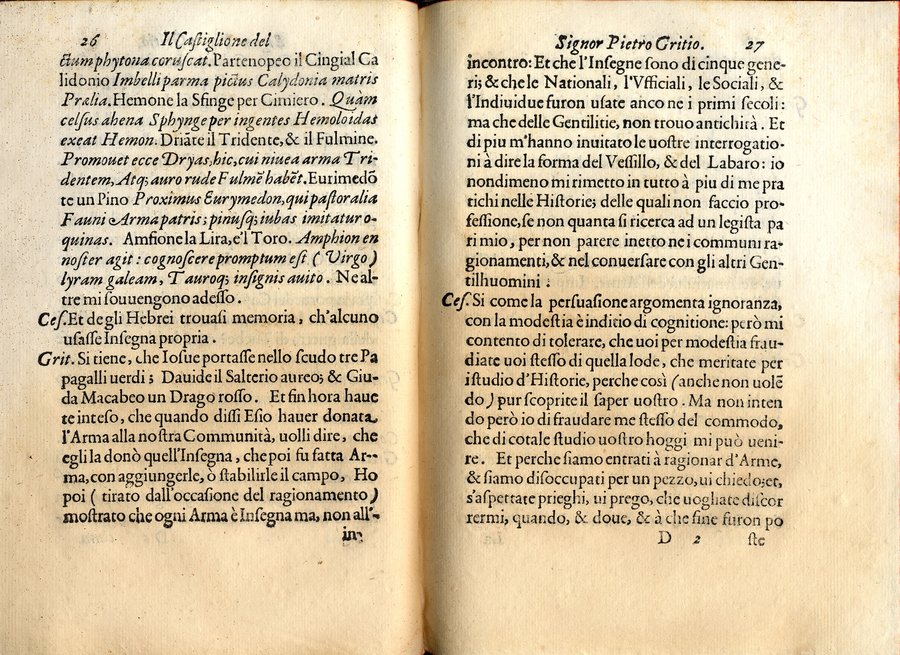 26 Il Castiglione del
ctium phytona coruscat. Partenopeo il Cingial Ca
lidonio Imbelli parma pictus Calydonia matris
Prælia. Hemone la Sfinge per Cimiero. Quàm
celsus ahena Sphynge per ingentes Hemoloidas
exeat Hemon. Driāte il Tridente, & il Fulmine.
Promouet ecce Dryas, hic, cui niuea arma Tri-
dentem, Atq; auro rude Fulmē habēt. Eurimedō
te un Pino Proximus Eurymedon, qui pastoralia
Fauni Arma patris; pinusq; iubas imitatur o-
quinas. Amfione la Lira, e'l Toro. Amphion en
noster agit: cognoscere promptum est (Virgo)
lyram galeam, Tauroq; insignis auito. Ne al-
tre mi souuengono adesso.
Ces. Et degli Hebrei trouasi memoria, ch'alcuno
usasse Insegna propria.
Grit. Si tiene, che Iosue portasse nello scudo tre Pa
pagalli uerdi; Dauide il Salterio aureo; & Giu-
da Macabeo un Drago rosso. Et fin hora haue
te inteso, che quando dissi Esio hauer donata
l'Arma alla nostra Communità, uolli dire, che
egli la donò quell'Insegna, che poi fu fatta Ar-
ma, con aggiungerle, ò stabilirle il campo. Ho
poi (tirato dall'occasione del ragionamento)
mostrato che ogni Arma è Insegna ma, non all'-
in
Signor Pietro Gritio. 27
incontro: Et che l'Insegne sono di cinque gene-
ri; & che le Nationali, l'Vfficiali, le Sociali, &
l'Indiuidue furon usate anco ne i primi secoli:
ma che delle Gentilitie, non trouo antichità. Et
di piu m'hanno inuitato le uostre interrogatio-
ni à dire la forma del Vessillo, & del Labaro: io
nondimeno mi rimetto in tutto à piu di me pra
tichi nelle Historie; delle quali non faccio pro-
fessione, se non quanta si ricerca ad un legista pa
ri mio, per non parere inetto ne i communi ra-
gionamenti, & nel conuersare con gli altri Gen-
tilhuomini:
Ces. Si come la persuasione argomenta ignoranza,
con la modestia è inditio di cognitione: però mi
contento di tolerare, che uoi per modestia frau-
diate uoi stesso di quella lode, che meritate per
istudio d'Historie, perche così (anche non uolē
do) pur scoprite il saper uostro. Ma non inten
do però io di fraudare me stesso del commodo,
che di cotale studio uostro hoggi mi può ueni-
re. Et perche siamo entrati à ragionar d'Arme,
& siamo disoccupati per un pezzo, ui chiedo; et,
s'aspettate prieghi, ui prego, che uogliate discor
rermi, quando, & doue, & à che fine furon po
D 2 ste